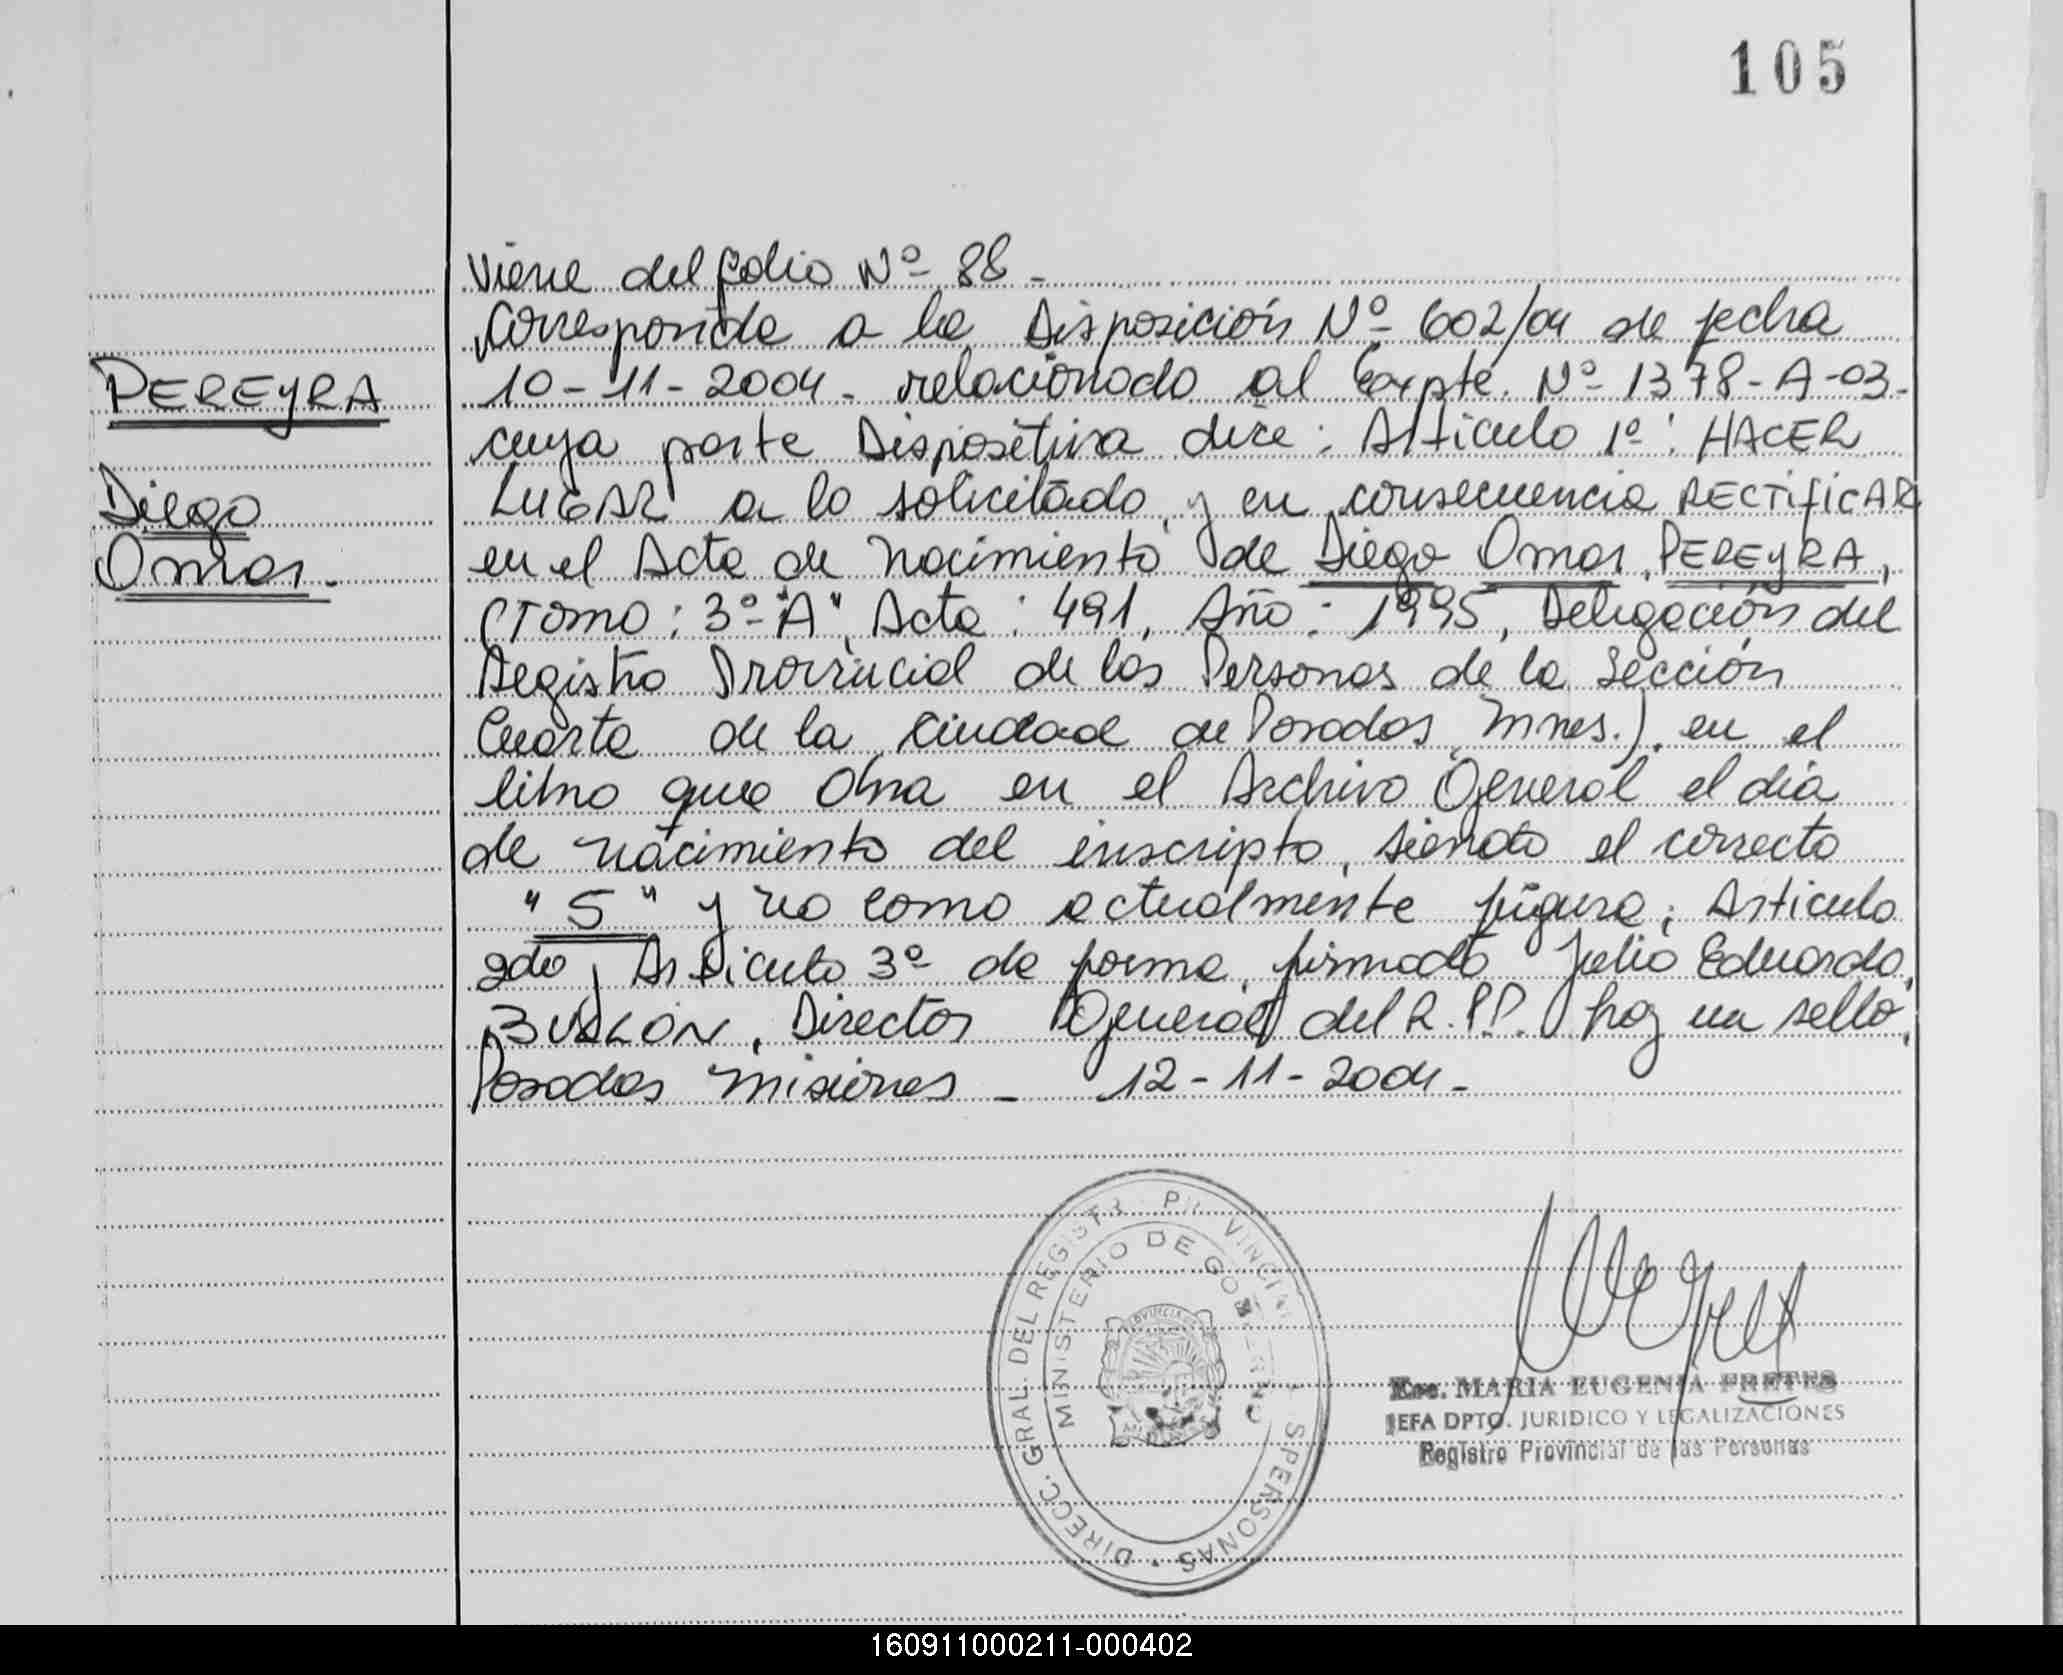 105
Viene del folio Nº 88 -
Corresponde a la Disposición Nº 602/04 de fecha
10-11-2004. relacionado al Expte. Nº 1378-A-03-
cuya parte Dispositiva dice: Artículo 1º: HACER
LUGAR a lo solicitado, y en consecuencia RECTIFICAR
en el Acta de nacimiento de Diego Omar PEREYRA,
(Tomo: 3º "A", Acta: 491, Año: 1995, Delegación del
Registro Provincial de las Personas de la Sección
Cuarta de la Ciudad de Posadas, Mnes.), en el
libro que obra en el Archivo General el día
de nacimiento del inscripto, siendo el correcto
"5" y no como actualmente figura; Artículo
2do, Artículo 3º de forma, firmado Julio Eduardo
Director General del R.P.P. hay un sello,
Posadas Misiones - 12-11-2004-
PEREYRA
Diego
Omar.
DIRECC. GRAL. DEL REGISTR PR VINCIA SPERSONAS
MINISTERIO DE GOB
Esc. MARIA EUGENIA FRETES
JEFA DPTO. JURIDICO Y LEGALIZACIONES
Registro Provincial de las Personas
160911000211-000402